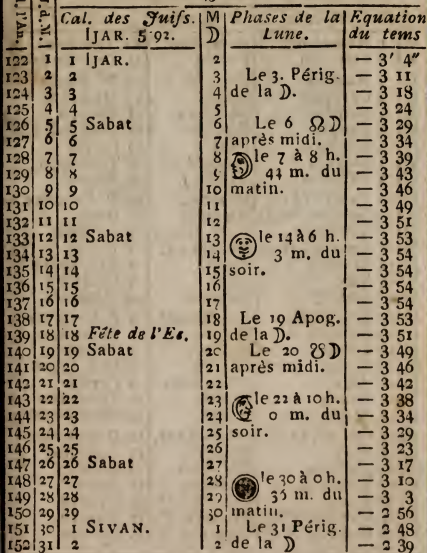 J. d. M. Cal. des Juifs. M Phases de la Equation
IJAR. 5 92. D Lune. du tems
122 1 1 IJAR. 2 — 3' 4"
123 2 2 3 Le 3. Périg. — 3 11
124 3 3 4 de la ☽. — 3 18
125 4 4 5 — 3 24
126 5 5 Sabat 6 Le 6 ☊☽ — 3 29
127 6 6 7 après midi. — 3 34
128 7 7 8 le 7 à 8 h. — 3 39
129 8 8 9 44 m. du — 3 43
130 9 9 10 matin. — 3 46
131 10 10 11 — 3 49
132 11 11 12 — 3 51
133 12 12 Sabat 13 le 14 à 6 h. — 3 53
134 13 13 14 3 m. du — 3 54
135 14 14 15 soir. — 3 54
136 15 15 16 — 3 54
137 16 16 17 — 3 54
138 17 17 18 Le 19 Apog. — 3 53
139 18 18 Fête de l'Ec. 19 de la ☽. — 3 51
140 19 19 Sabat 20 Le 20 ☋☽ — 3 49
141 20 20 21 après midi. — 3 46
142 21 21 22 — 3 42
143 22 22 23 le 22 à 10 h. — 3 38
144 23 23 24 0 m. du — 3 34
145 24 24 25 soir. — 3 29
146 25 25 26 — 3 23
147 26 26 Sabat 27 — 3 17
148 27 27 28 le 30 à 0 h. — 3 10
149 28 28 29 35 m. du — 3 3
150 29 29 30 matin. — 2 56
151 30 1 SIVAN. 1 Le 31 Périg. — 2 48
152 31 2 2 de la ☽ — 2 39